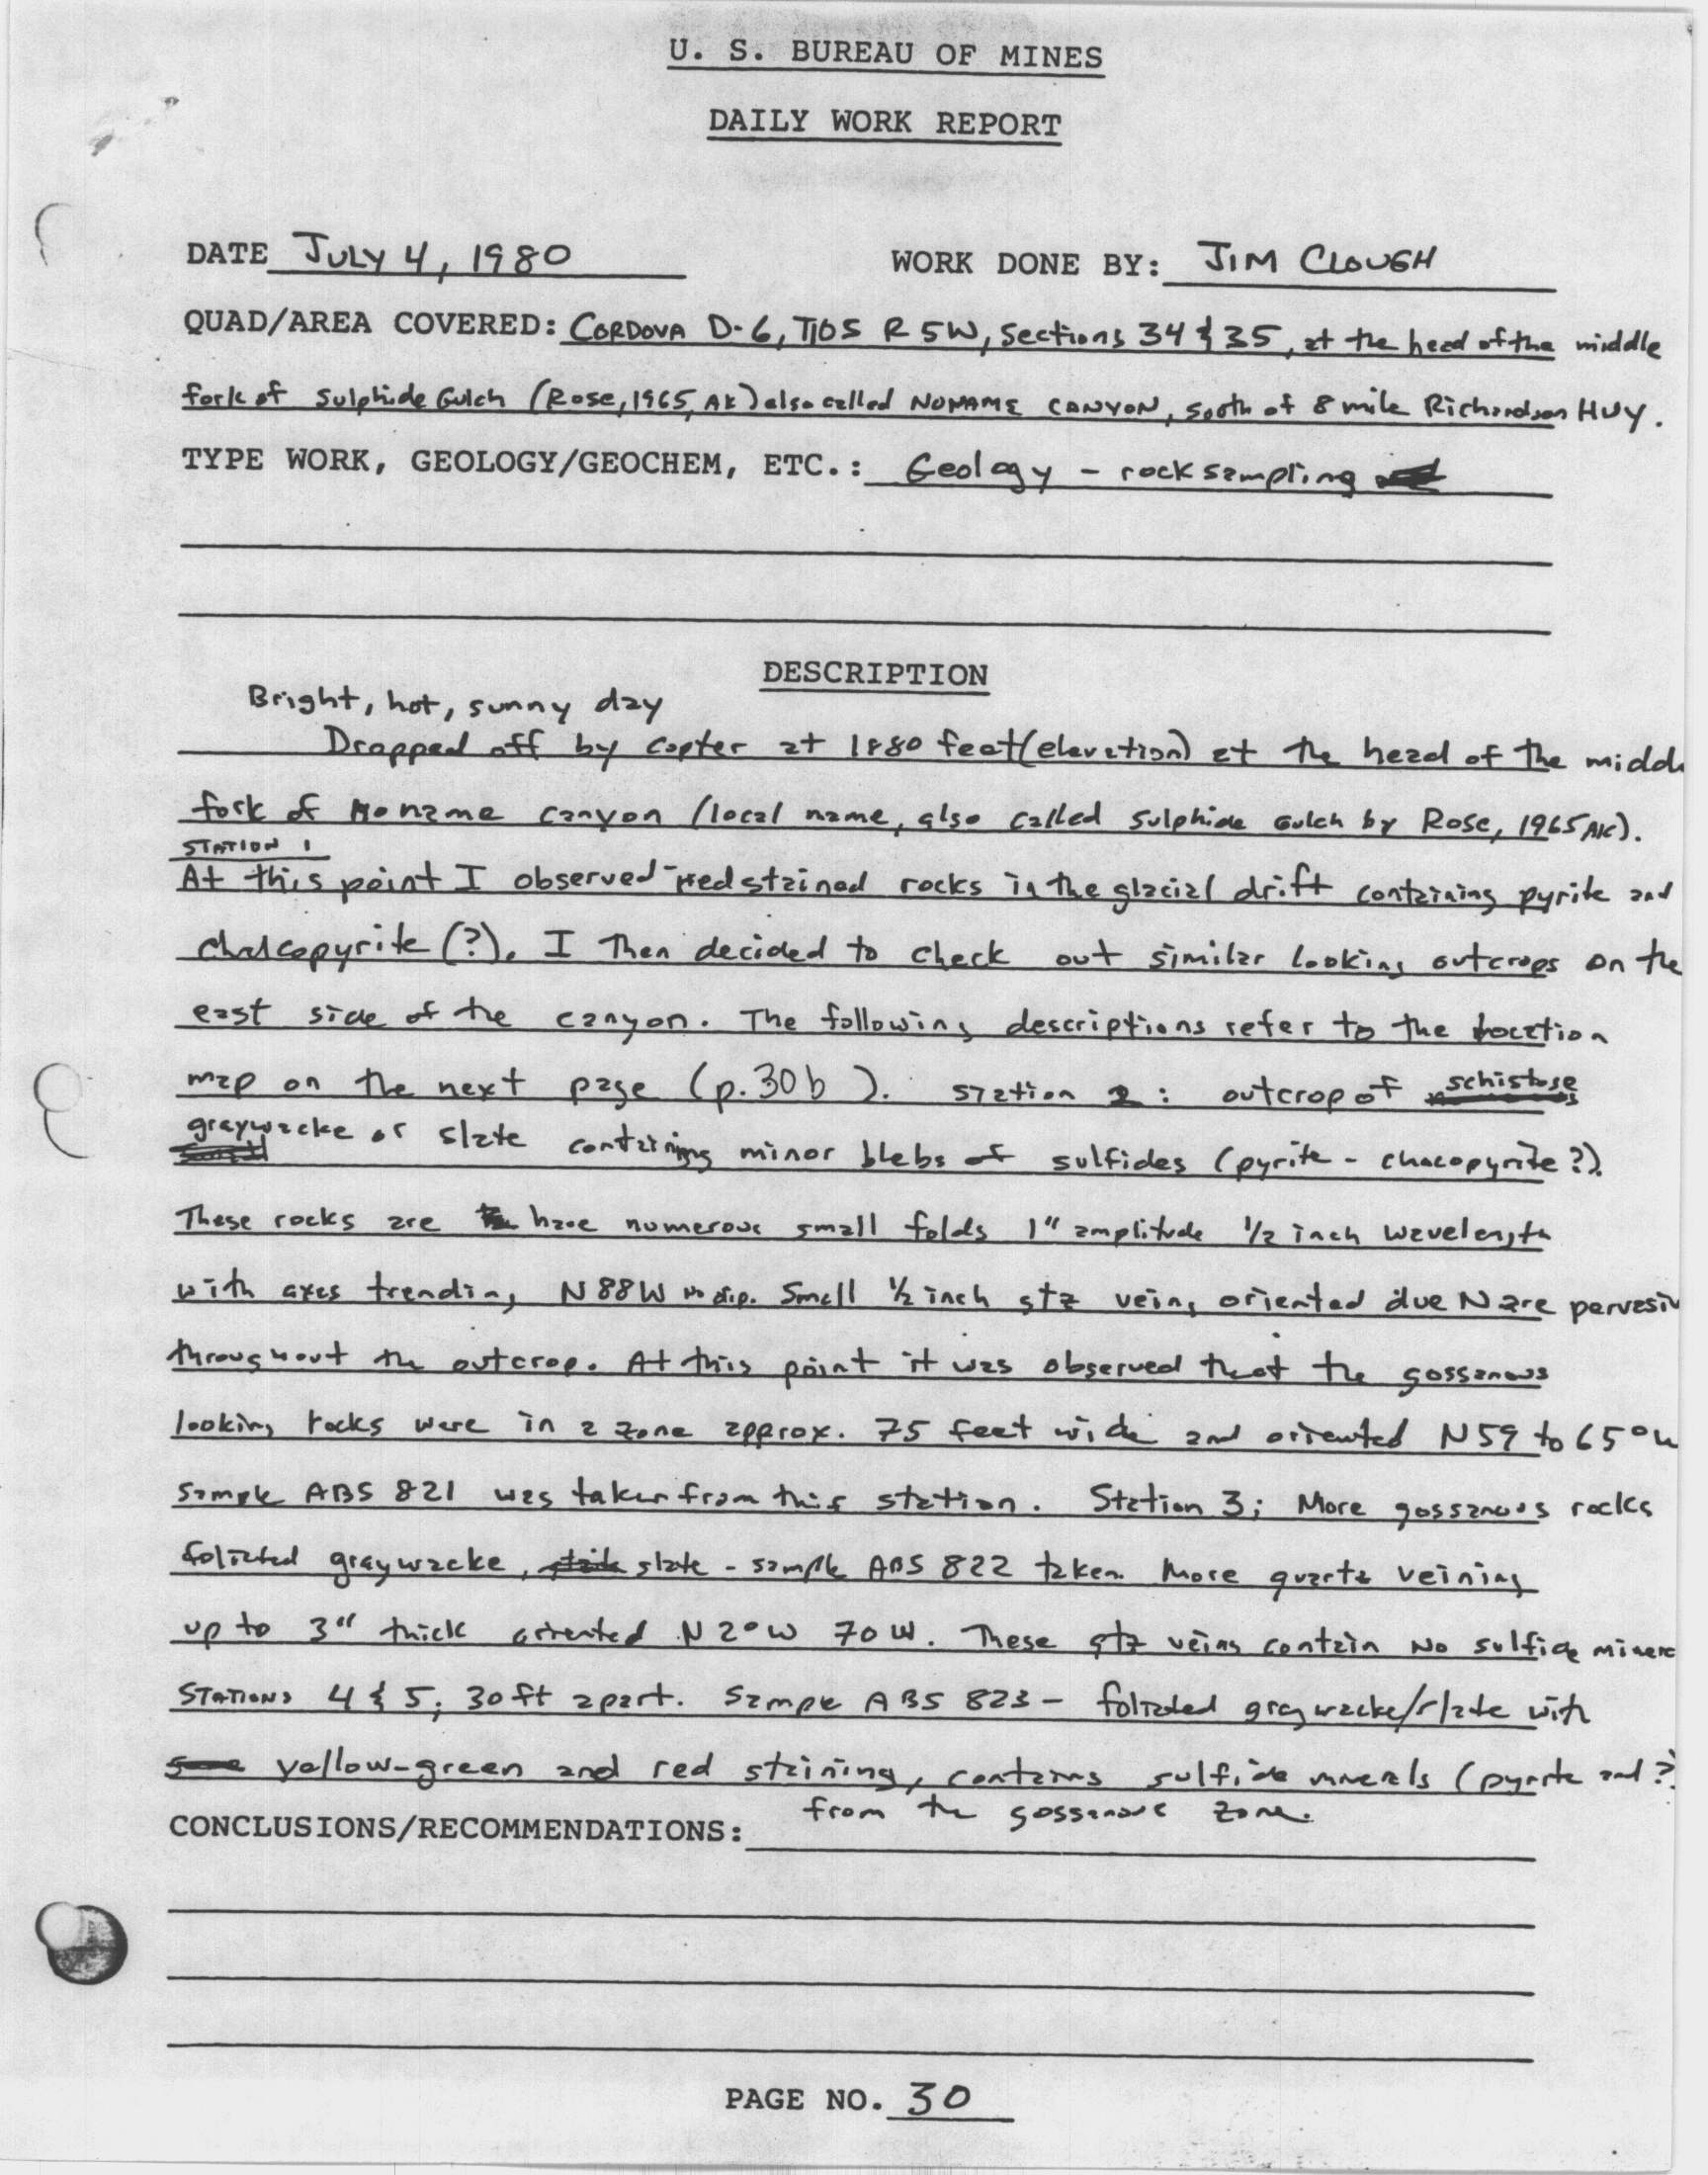 U. S. BUREAU OF MINES
DAILY WORK REPORT
DATE JULY 4, 1980 WORK DONE BY: JIM CLOUGH
QUAD/AREA COVERED: CORDOVA D-6, T10S R5W, Sections 34 & 35, at the head of the middle
fork of Sulphide Gulch (Rose, 1965, AK) also called NONAME CANYON, south of 8 mile Richardson HWY.
TYPE WORK, GEOLOGY/GEOCHEM, ETC.: Geology - rock sampling
DESCRIPTION
Bright, hot, sunny day
Dropped off by copter at 1880 feet (elevation) at the head of the middle
fork of Noname canyon (local name, also called Sulphide Gulch by Rose, 1965 AK).
STATION 1
At this point I observed red stained rocks in the glacial drift containing pyrite and
chalcopyrite (?). I then decided to check out similar looking outcrops on the
east side of the canyon. The following descriptions refer to the location
map on the next page (p. 30b ). Station 2: outcrop of schistose
graywacke or slate containing minor blebs of sulfides (pyrite - chacopyrite?).
These rocks are have numerous small folds 1" amplitude 1/2 inch wavelength
with axes trending N88W no dip. Small 1/2 inch qtz veins oriented due N are pervasiv
throughout the outcrop. At this point it was observed that the gossanous
looking rocks were in a zone approx. 75 feet wide and oriented N59 to 65°W
Sample ABS 821 was taken from this station. Station 3; More gossanous rocks
foliated graywacke, slate - sample ABS 822 taken. More quartz veining
up to 3" thick oriented N2°W 70W. These qtz veins contain No sulfide minera
STATIONS 4 & 5; 30 ft apart. Sample ABS 823 - foliated graywacke/slate with
yellow-green and red staining, contains sulfide minerals (pyrite and ?)
from the gossanous zone.
CONCLUSIONS/RECOMMENDATIONS:
PAGE NO. 30